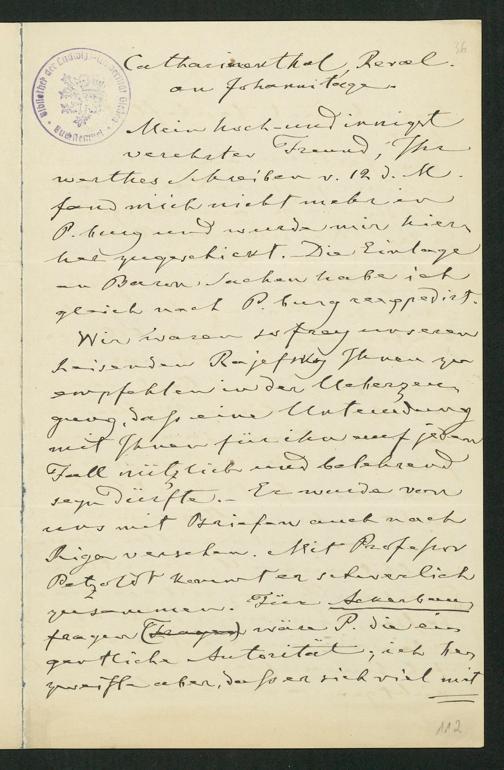 36
Catharinenthal, Reval.
an Johannitage.
Bibliothek der Ludwigs-Universität Giessen
Mein hoch- und innigst
verehrter Freund, Ihr
werthes Schreiben v. 12 d. M.
fand mich nicht mehr in
P.burg und wurde mir hier-
her zugeschickt. Die Einlage
an Baron Sachen habe ich
gleich nach P.burg
Wir waren so frey unseren
Reisenden Rajefsky Ihnen zu
empfehlen in der Ueberzeu-
gung, dass eine Unterredung
mit Ihnen für ihn auf jeden
Fall nützlich und belehrend
seyn dürfte. – Er wurde von
uns mit Briefen auch nach
Riga versehen. Mit Professor
Petzoldt kommt er schwerlich
zusammen. Für Ackerbau-
fragen (Fragen) wäre P. die ei-
gentliche Autorität; ich be-
zweifle aber, dass er sich viel mit
112